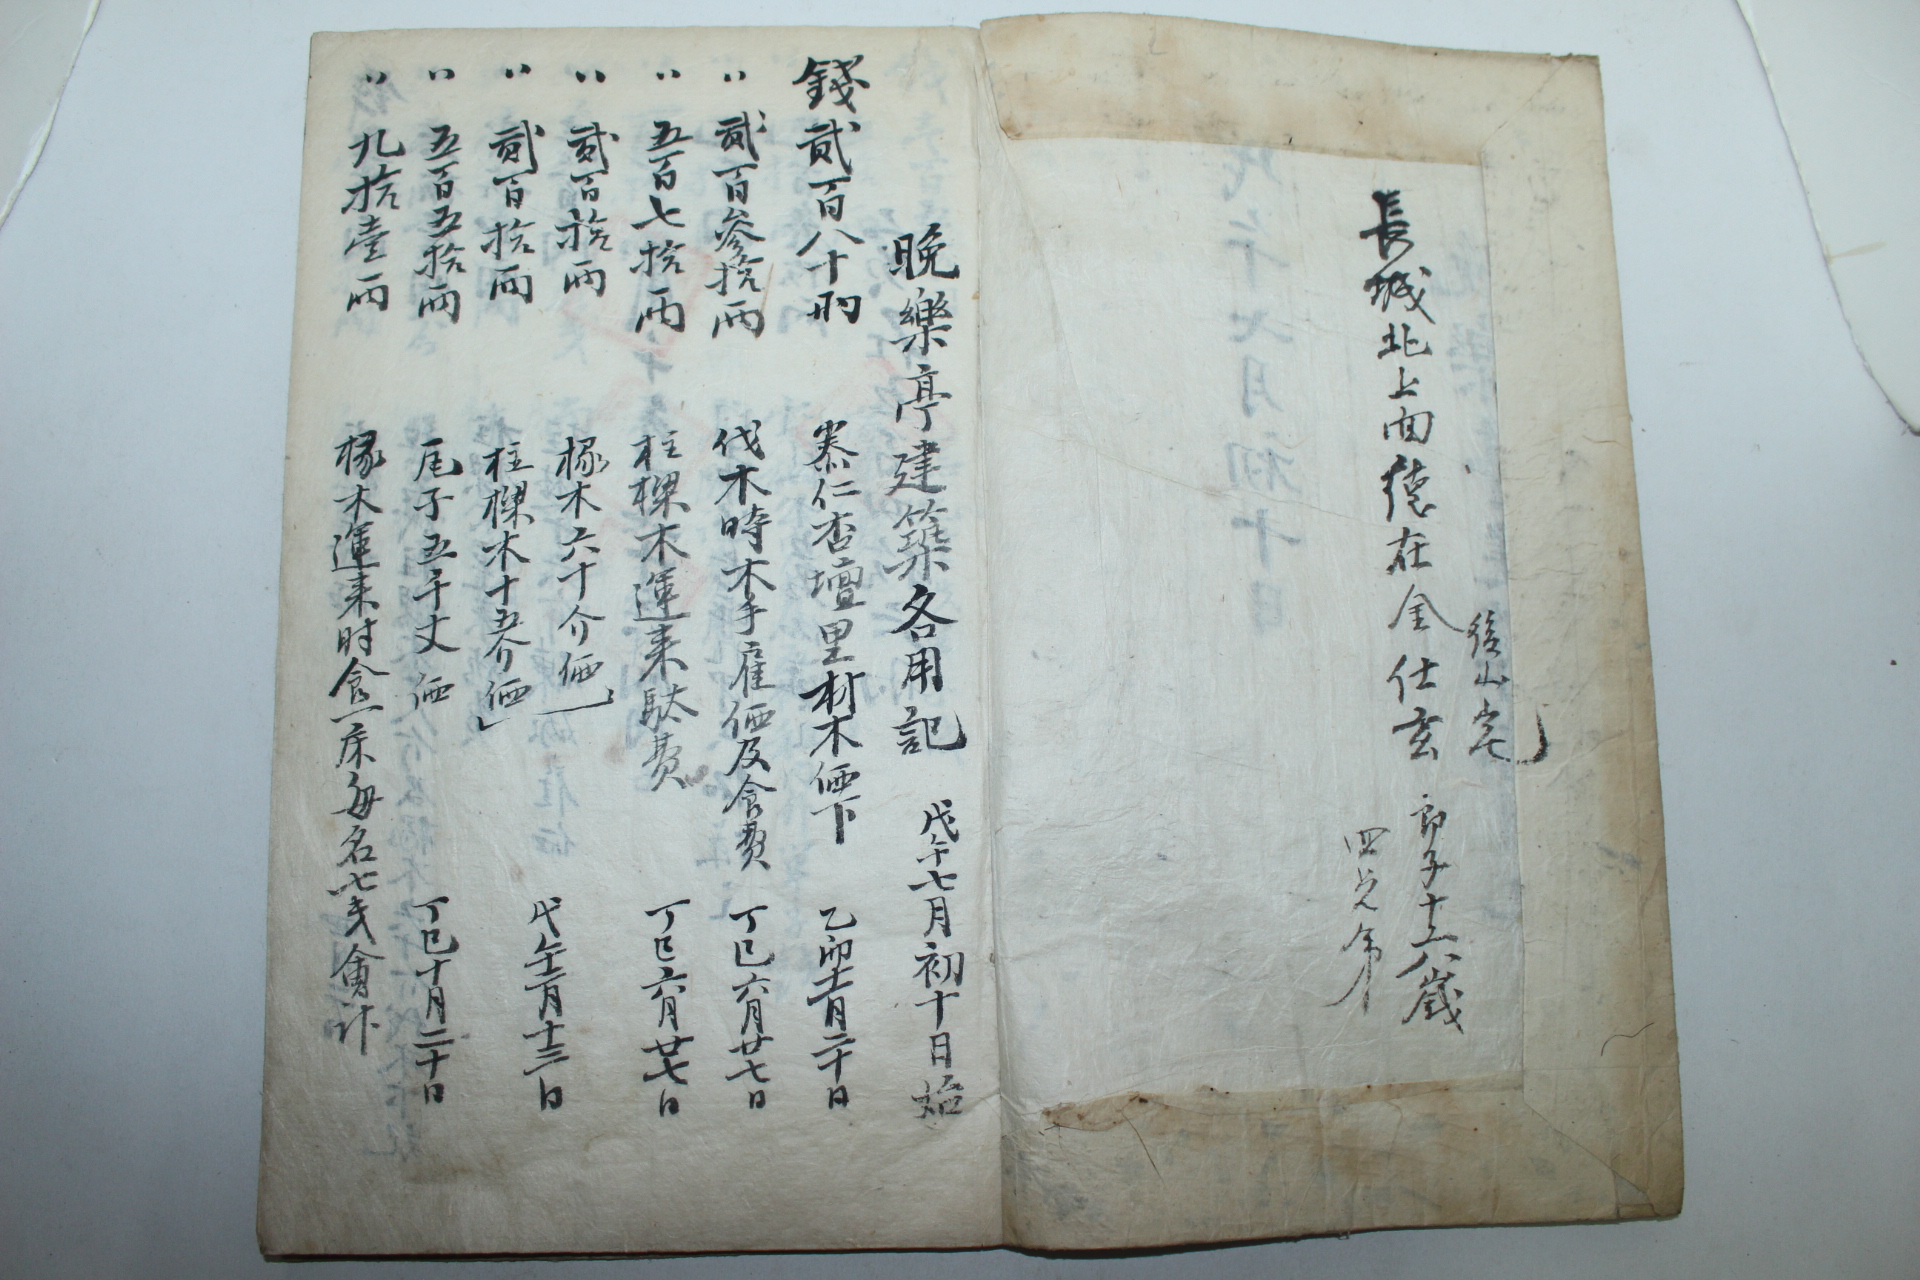 長城北上面德在金仕玄
後山宅
郎子十六歲
四兄弟
晩樂亭建築各用記 戊午七月初十日始
錢貳百八十兩 泰仁杏壇里材木価下 乙卯十一月二十日
〃 貳百參拾兩 伐木時木手雇価及食費 丁巳六月廿七日
〃 五百七拾兩 柱樑木運来駄費 丁巳六月廿七日
〃 貳百拾兩 椽木六十介価
〃 貳百拾兩 柱樑木十五介価 戊午二月十三日
〃 五百五拾兩 瓦子五千丈価 丁巳十月二十日
〃 九拾壹兩 椽木運来时食一床每名七戋會计